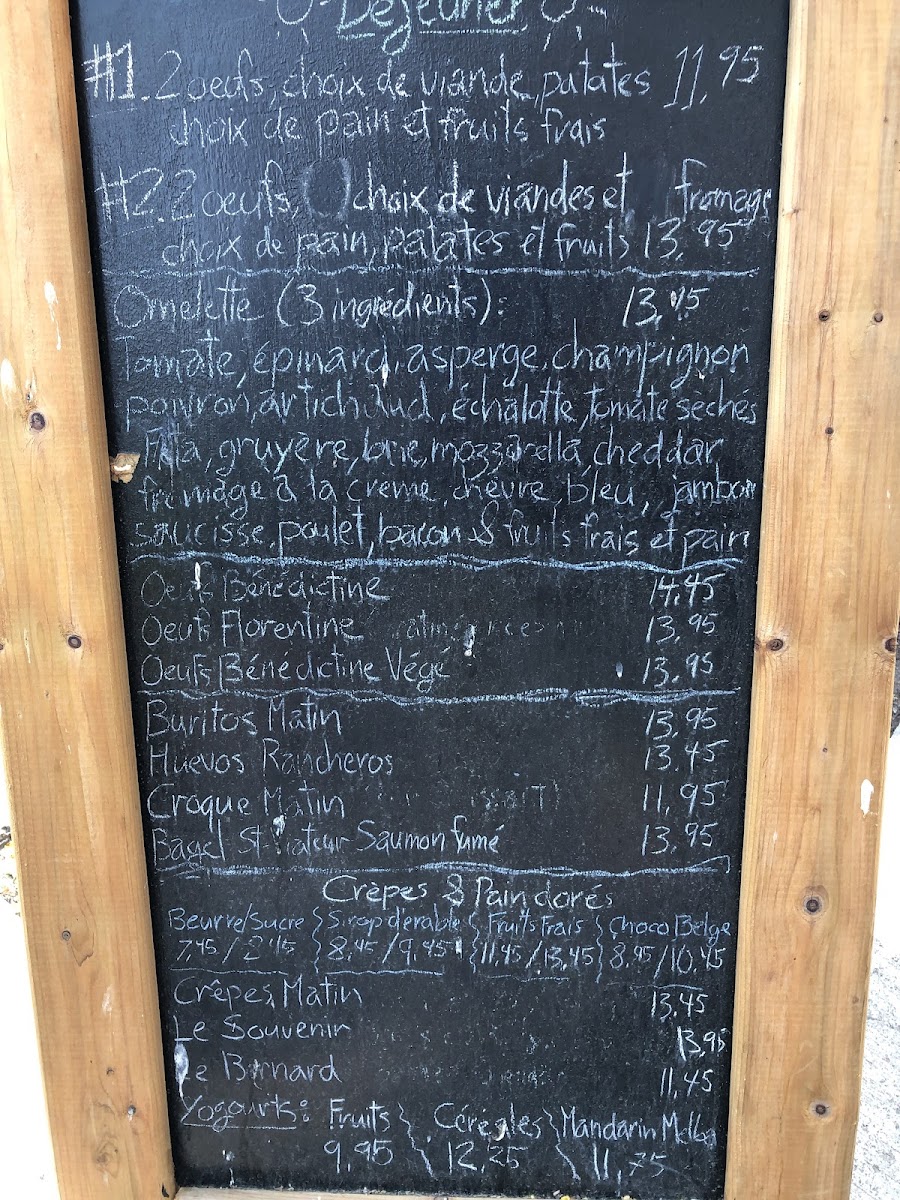 Déjeuner
#1. 2 oeufs, choix de viande, patates 11,95
choix de pain et fruits frais
#2. 2 oeufs, choix de viandes et fromage
choix de pain, patates et fruits 13,95
Omelette (3 ingrédients): 13,45
Tomate, épinard, asperge, champignon
poivron, artichaud, échalotte, tomate sechés
Féta, gruyère, brie, mozzarella, cheddar
fromage à la creme, chèvre, bleu, jambon
saucisse, poulet, bacon & fruits frais et pain
Oeufs Bénédictine 14,45
Oeufs Florentine 13,95
Oeufs Bénédictine Végé 13,95
Buritos Matin 13,95
Huevos Rancheros 13,45
Croque Matin 11,95
Bagel St-Viateur Saumon fumé 13,95
Crèpes & Pain dorés
Beurre/Sucre Sirop d'érable Fruits Frais Choco Belge
7,45 / 8,45 / 9,45 11,45 / 13,45 8,95 / 10,45
Crêpes Matin 13,45
Le Souvenir 13,95
Le Bernard 11,45
Yogourts: Fruits Céréales Mandarin Melba
9,95 12,25 11,75